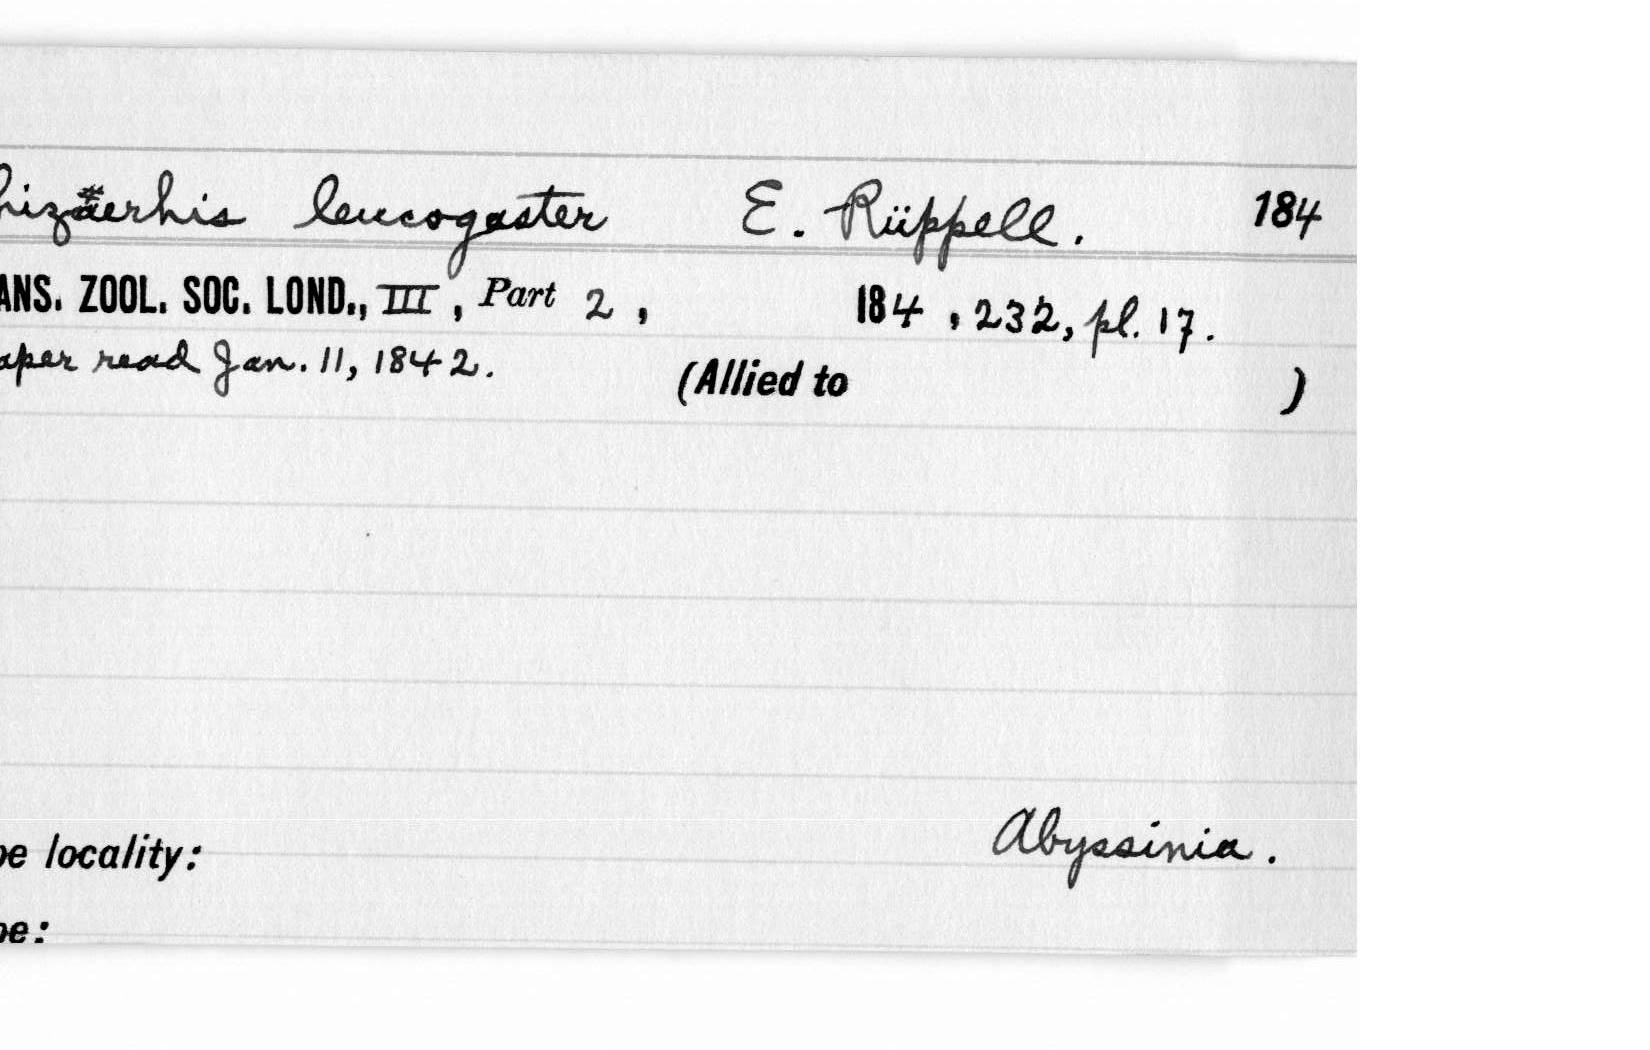 hizäerhis leucogaster E. Rüppell. 184
ANS. ZOOL. SOC. LOND., III, Part 2, 184 , 232, pl. 17.
aper read Jan. 11, 1842. (Allied to )
pe locality: Abyssinia.
pe: